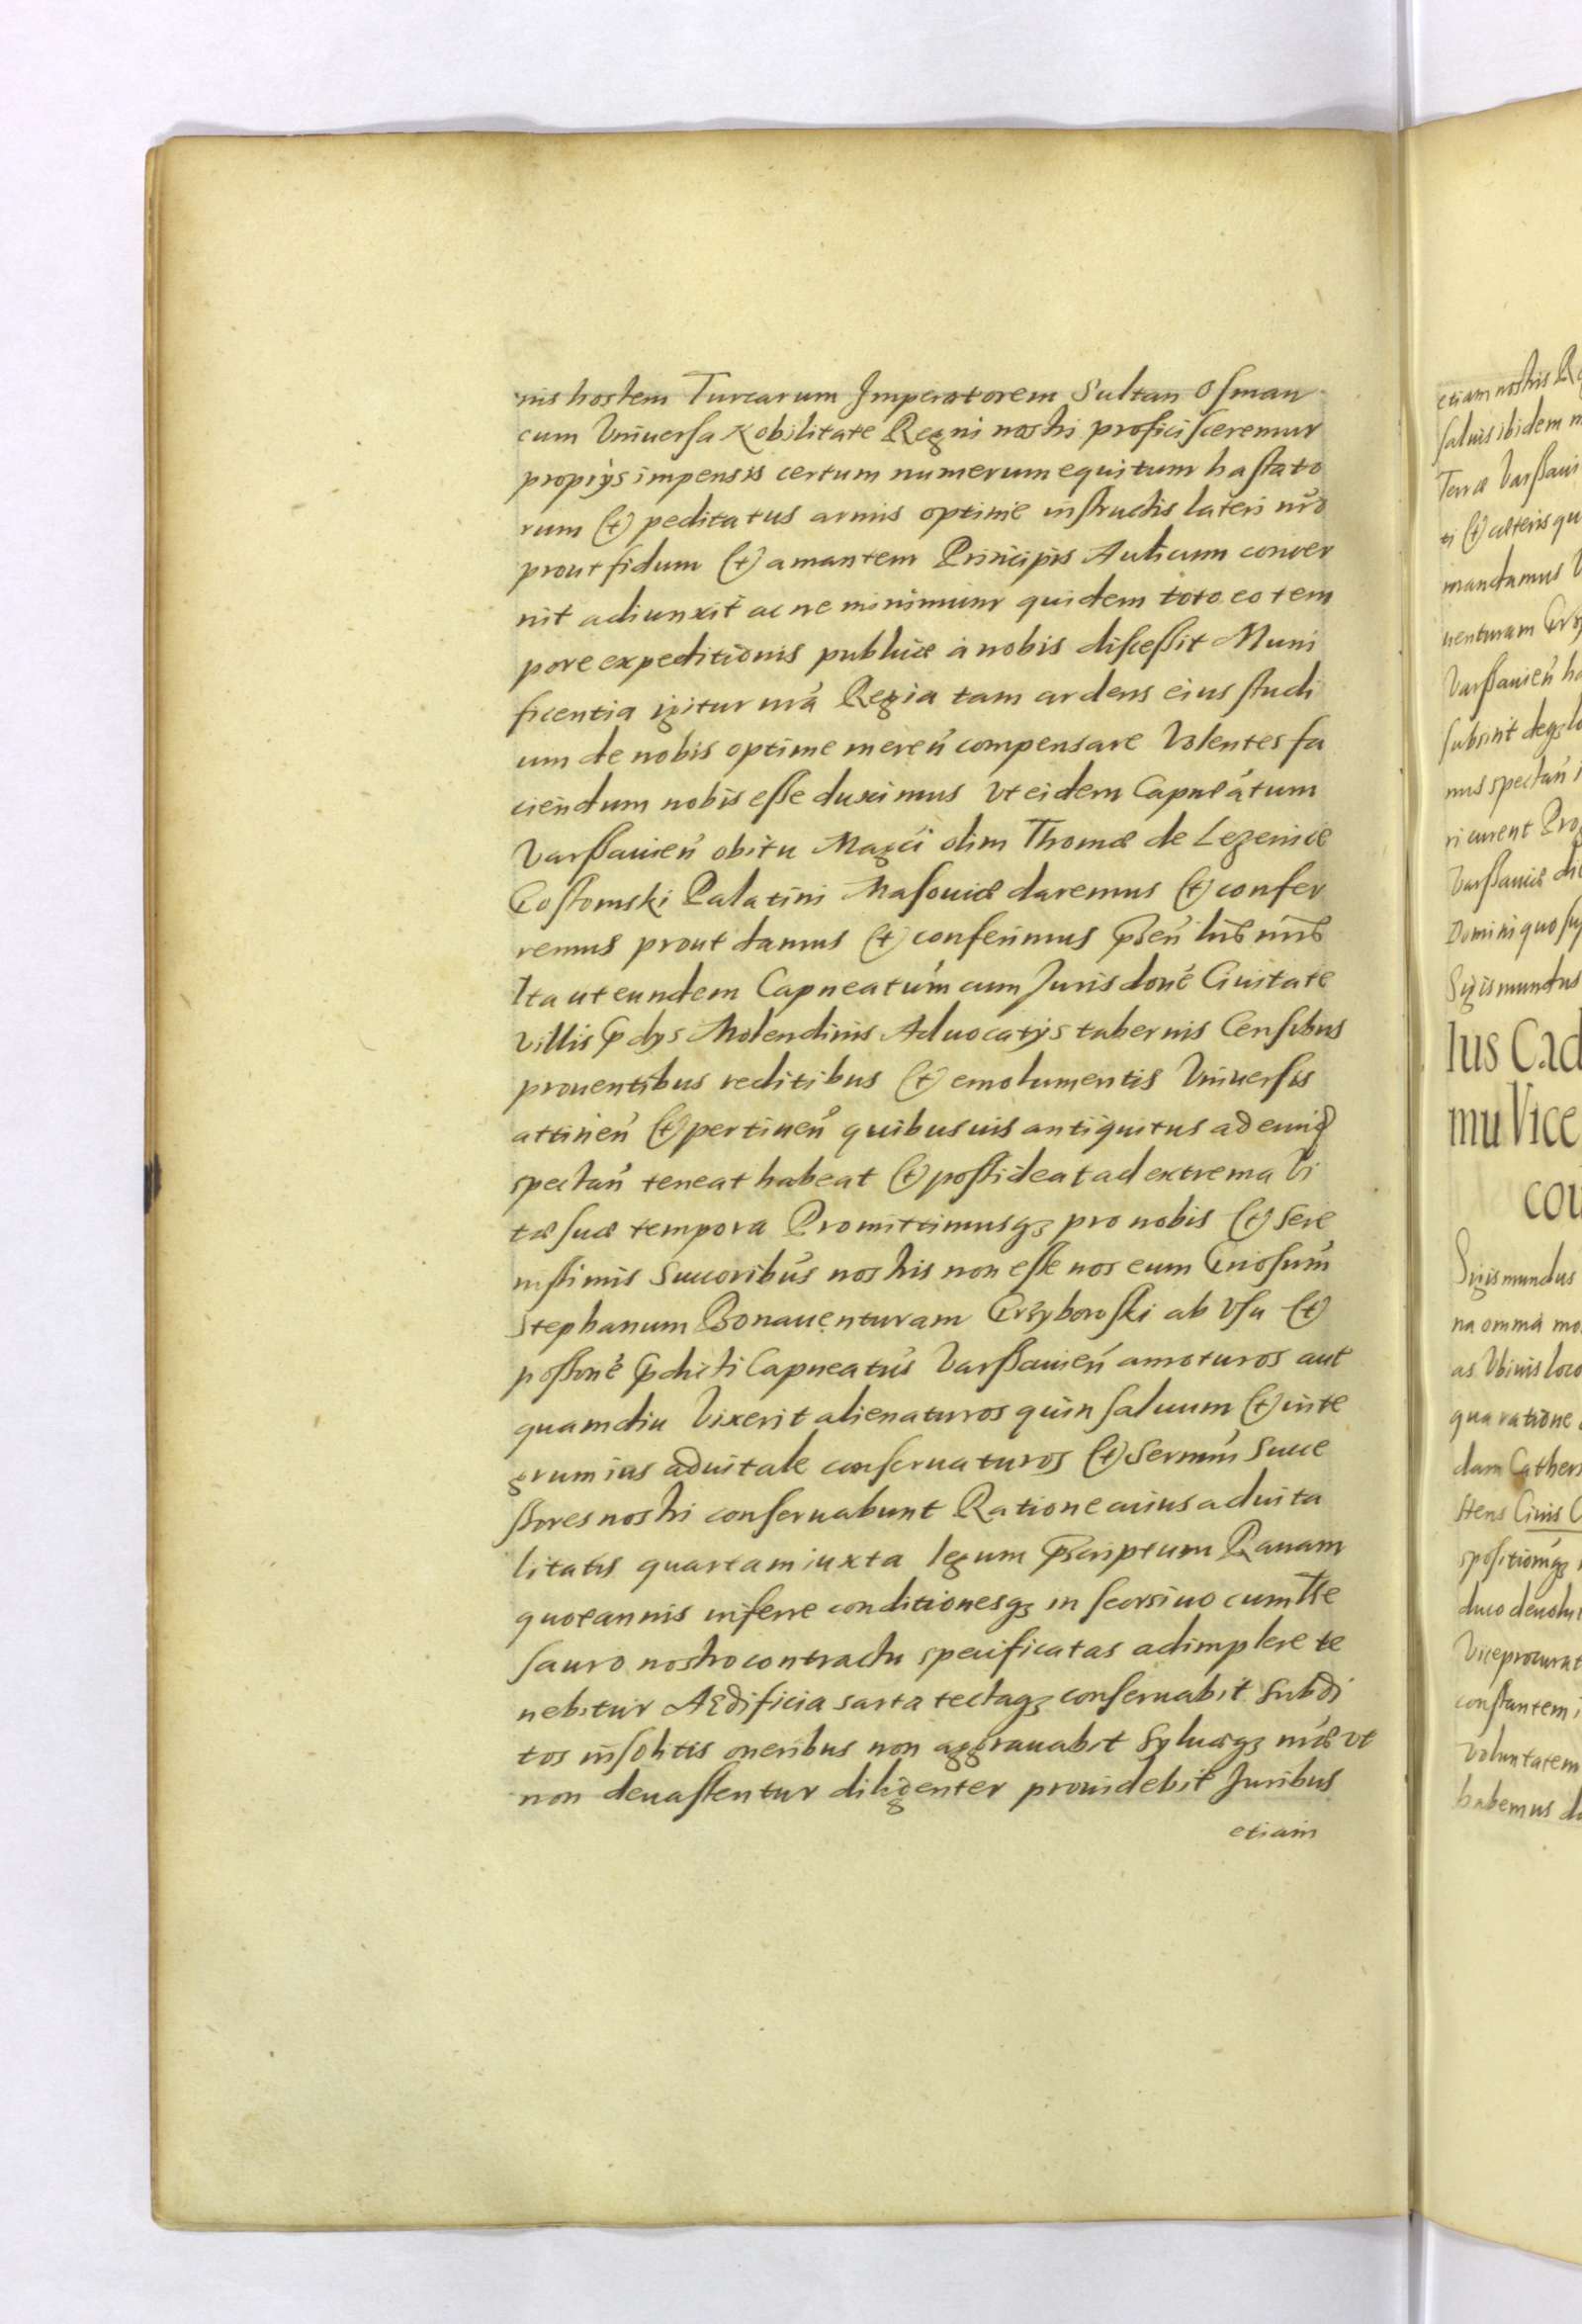 nis hostem Turcarum Imperatorem Sultan Osman
cum Vniuersa Nobilitate Regni nostri proficisceremur
proprijs impensis certum numerum equitum hastato
rum (et) peditatus armis optime instructis lateri nr̃o
prout fidum (et) amantem Principis Aulicum conue
nit adiunxit ac ne minimum quidem toto eo tem
pore expeditionis publicæ à nobis discessit Muni
ficentia igitur nr̃a Regia tam ardens eius studi
um de nobis optime mereñ compensare Volentes fa
ciendum nobis esse duximus Vt eidem Capneatum
Varssauieñ obitu Magci olim Thomæ de Lezenice
Gostomski Palatini Masouiæ daremus (et) confer
remus prout damus (et) conferimus p̃señ lr̃is nr̃is
Ita ut eundem Capneatum cum Jurisdone Ciuitate
Villis p̃dijs Molendinis Aduocatijs tabernis Censibus
prouentibus reditibus (et) emolumentis Vniuersis
attineñ (et) pertineñ quibusuis antiquitus ad eund
spectañ teneat habeat (et) possideat ad extrema Vi
tæ suæ tempora Promittimusq3 pro nobis (et) Sere
nissimis Succoribus nostris non esse nos eum Gnosum
Stephanum Bonauenturam Grzyboroski ab Vsu (et)
possone p̃dicti Capneatus Varssauieñ amoturos aut
quamdiu Vixerit alienaturos quin saluum (et) inte
grum ius aduitale conseruaturos (et) Sermi Succe
ssores nostri conseruabunt Ratione cuius aduita
litatis quartam iuxta legum p̃scriptum Rauam
quotannis inferre conditionesq3 in seorsiuo cum The
sauro nostro contractu specificatas adimplere te
nebitur Ædificia sarta tectaq3 conseruabit Subdi
tos insolitis oneribus non aggrauabit Syluasq3 nr̃as Vt
non deuastentur diligenter prouidebit Juribus
etiam
etiam nostris Re
saluis ibidem
Terræ Varssaui
ti (et) cæteris qu
mandamus V
uenturam Grzy
Varssauieñ ha
subsint deq3 lo
mus spectañ
ri curent Pro
Varssauiæ die
Domini quo su
Sigismundus
lus Cad
mu Vice
cou
Sigismundus
na omma mo
as Vbiuis loco
qua ratione
dam Cather
stens Ciuis C
spositionuq3
duco deuolu
Viceprocurat
constantem i
Voluntatem
habemus da